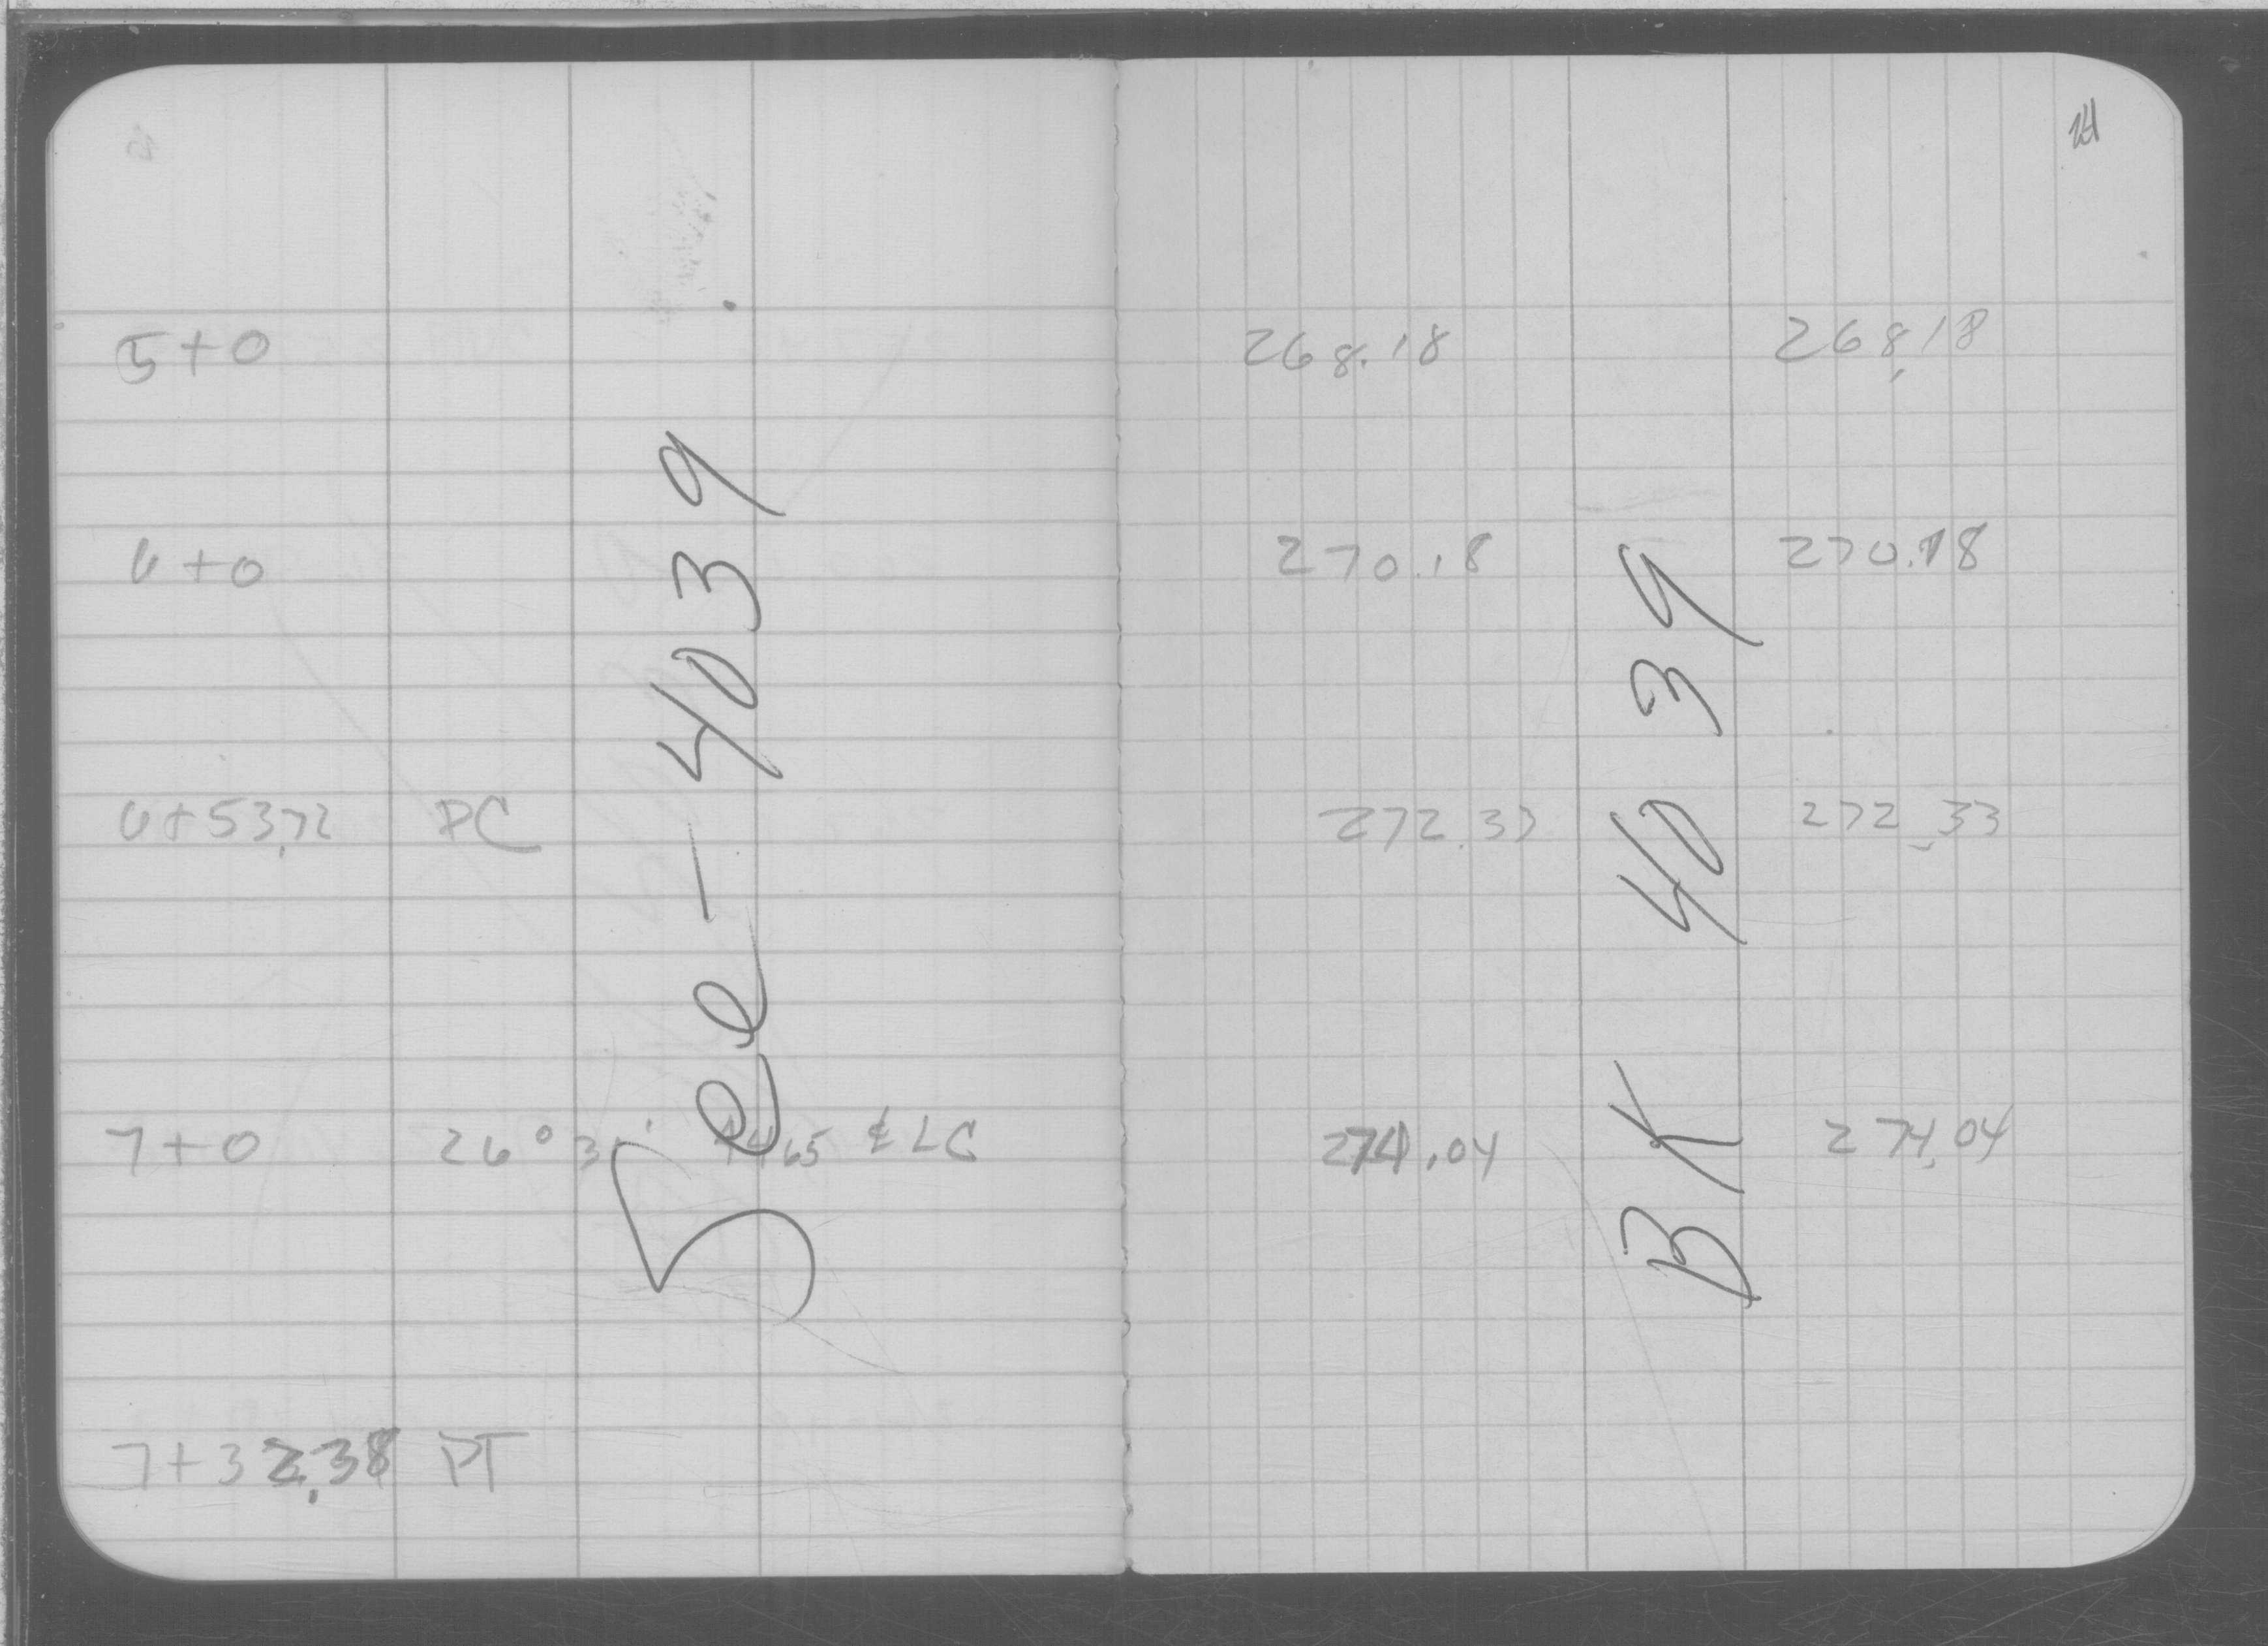 5+0 268.18 268.18
6+0 270.18 270.18
6+53.72 PC 272.33 272.33
7+0 26° 3 65 ¢ LC 274.04 274.04
7+32.38 PT
See - 4039
BK 4039